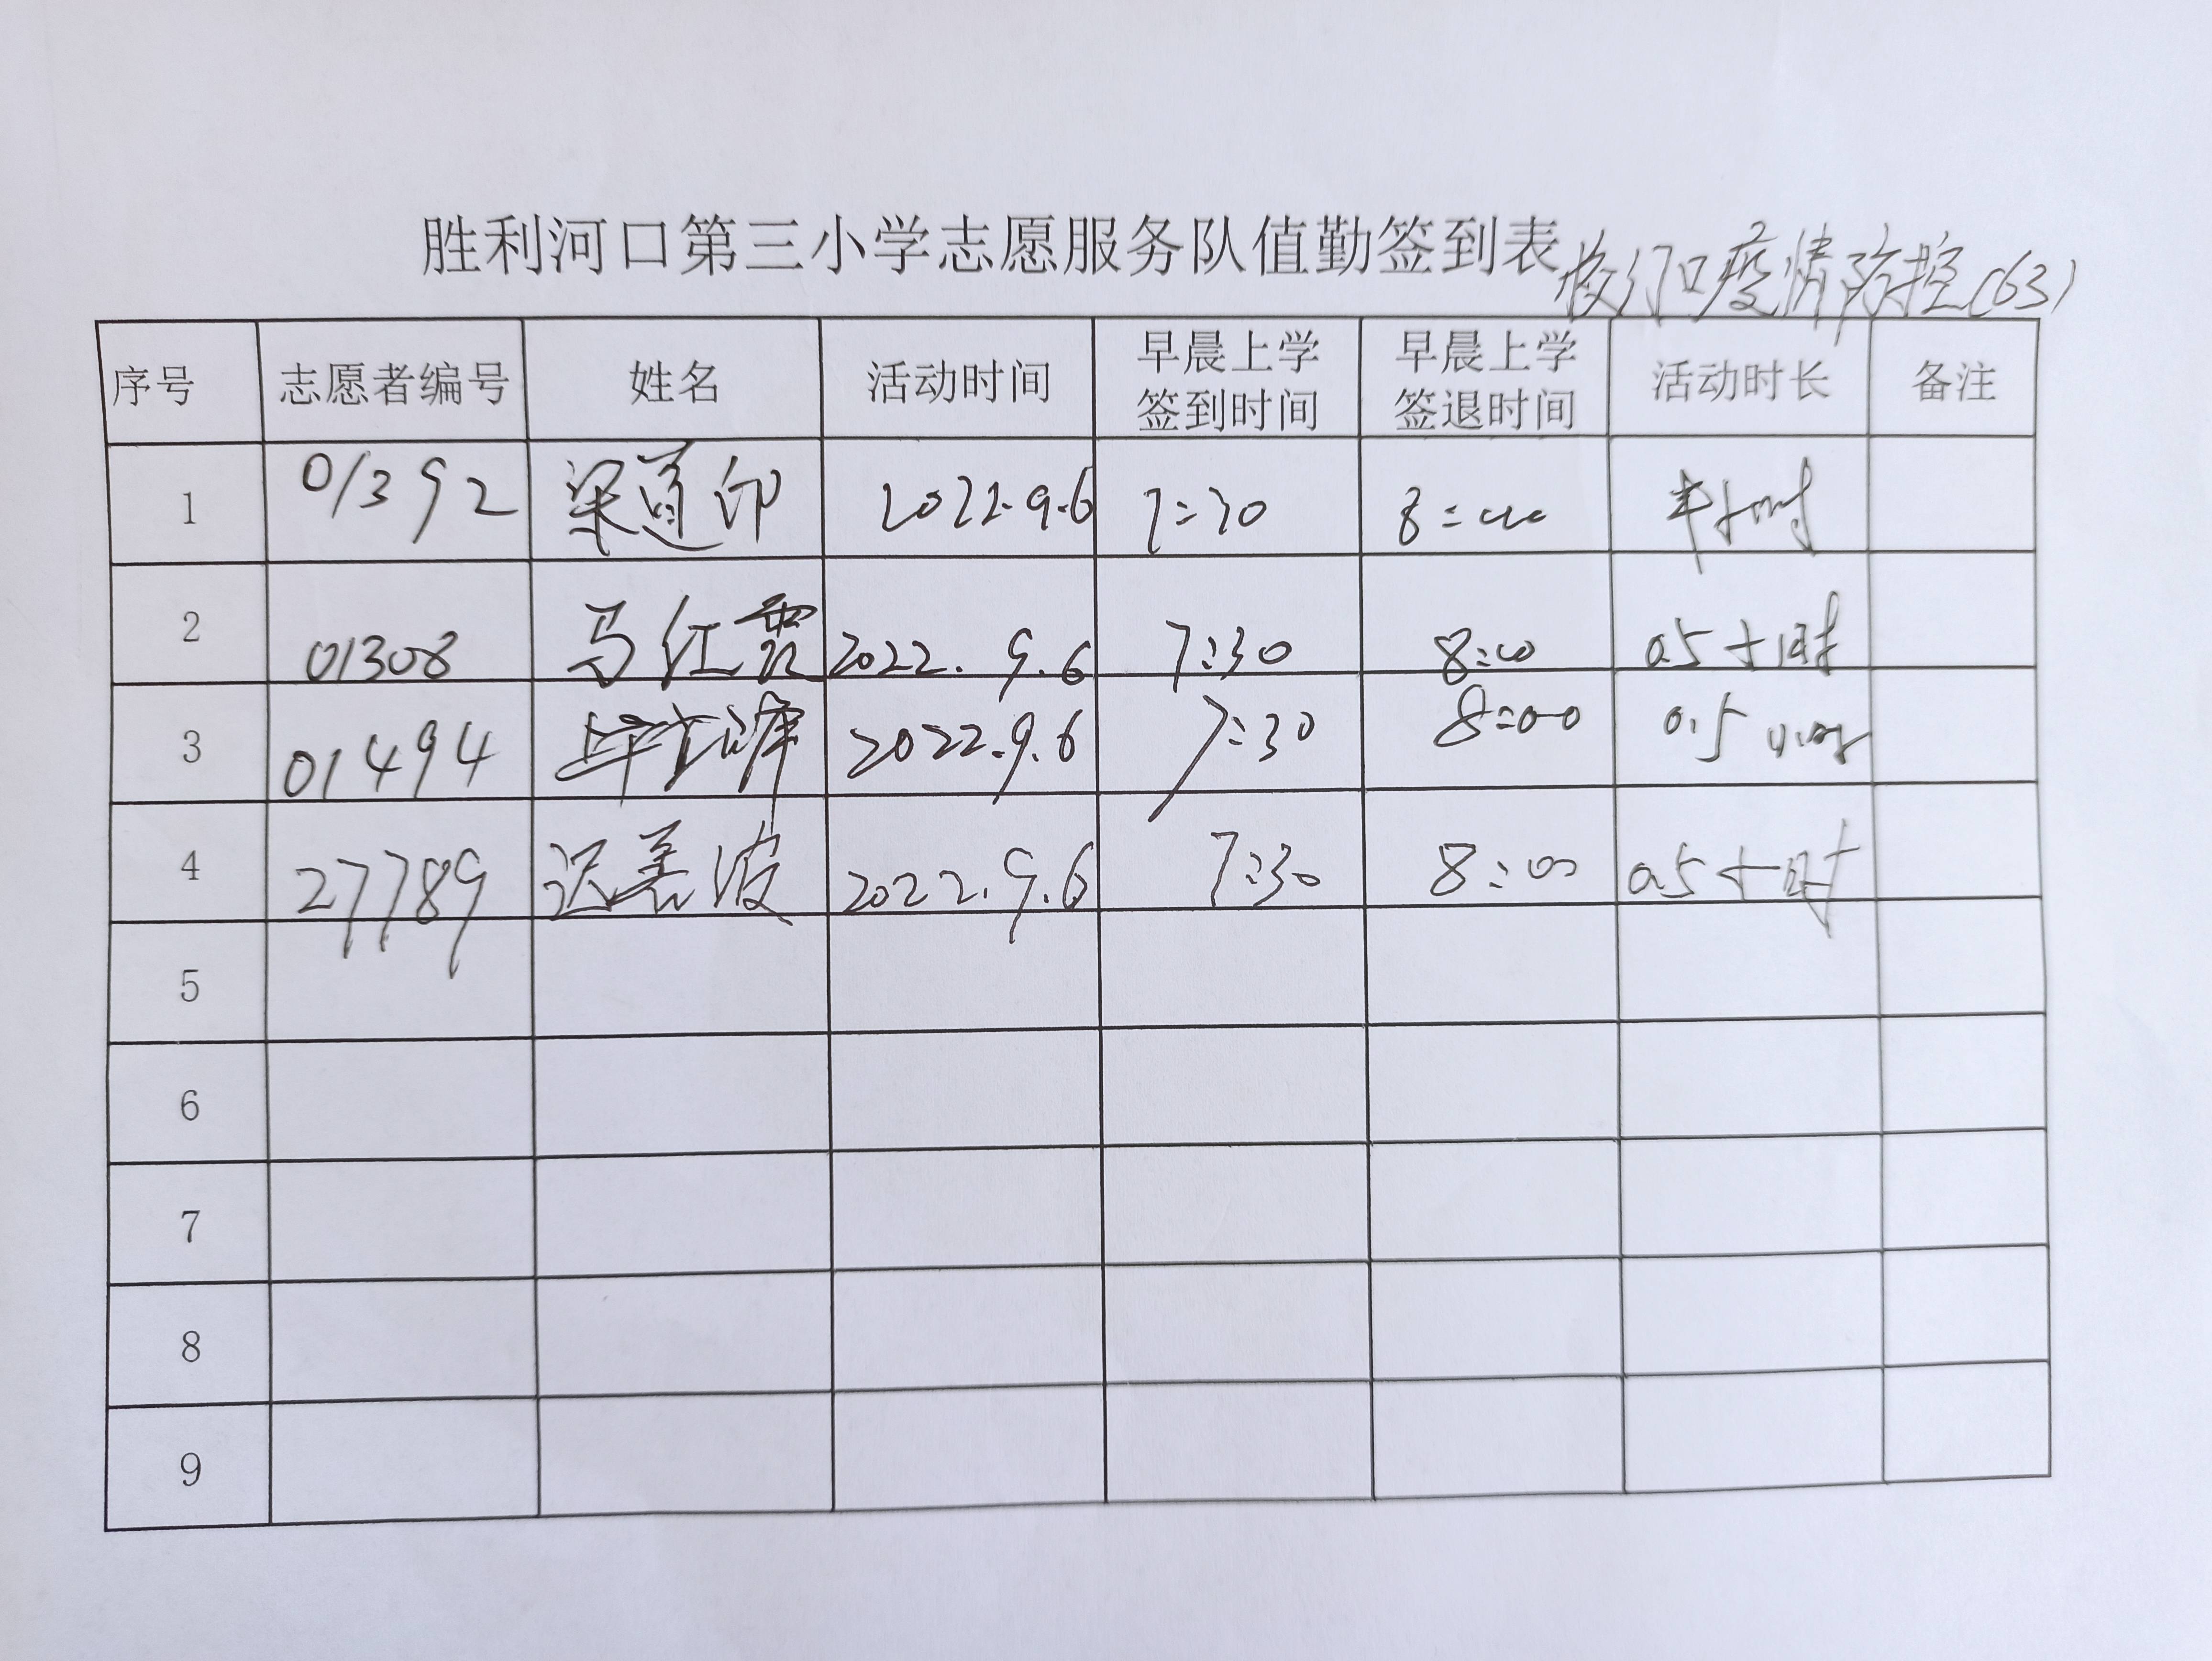 胜利河口第三小学志愿服务队值勤签到表 校门口疫情防控(63)
序号 志愿者编号 姓名 活动时间 早晨上学签到时间 早晨上学签退时间 活动时长 备注
1 01392 梁道印 2022.9.6 7:30 8:00 半小时
2 01308 马红霞 2022.9.6 7:30 8:00 0.5小时
3 01494 2022.9.6 7:30 8:00 0.5小时
4 27789 迟善波 2022.9.6 7:30 8:00 0.5小时
5
6
7
8
9